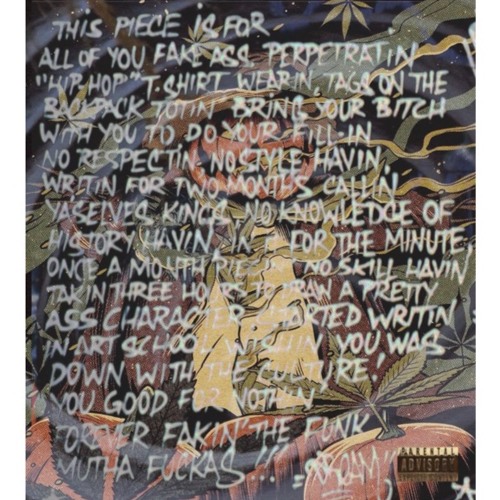 THIS PIECE IS FOR
ALL OF YOU FAKE ASS PERPETRATIN
"HIP HOP" T-SHIRT WEARIN, TAGS ON THE
BACKPACK TOTIN' BRING YOUR BITCH
WITH YOU TO DO YOUR FILL-IN
NO RESPECTIN, NO STYLE HAVIN,
WRITIN FOR TWO MONTHS CALLIN
YASELVES KINGS, NO KNOWLEDGE OF
HISTORY HAVIN', IN IT FOR THE MINUTE,
ONCE A MONTH PIECIN', NO SKILL HAVIN'
TAKIN THREE HOURS TO DRAW A PRETTY
ASS CHARACTER, STARTED WRITIN
IN ART SCHOOL, WISHIN YOU WAS
DOWN WITH THE CULTURE!
YOU GOOD FOR NOTHIN
FOREVER FAKIN' THE FUNK
MUTHA FUCKAS!!!
PARENTAL
ADVISORY